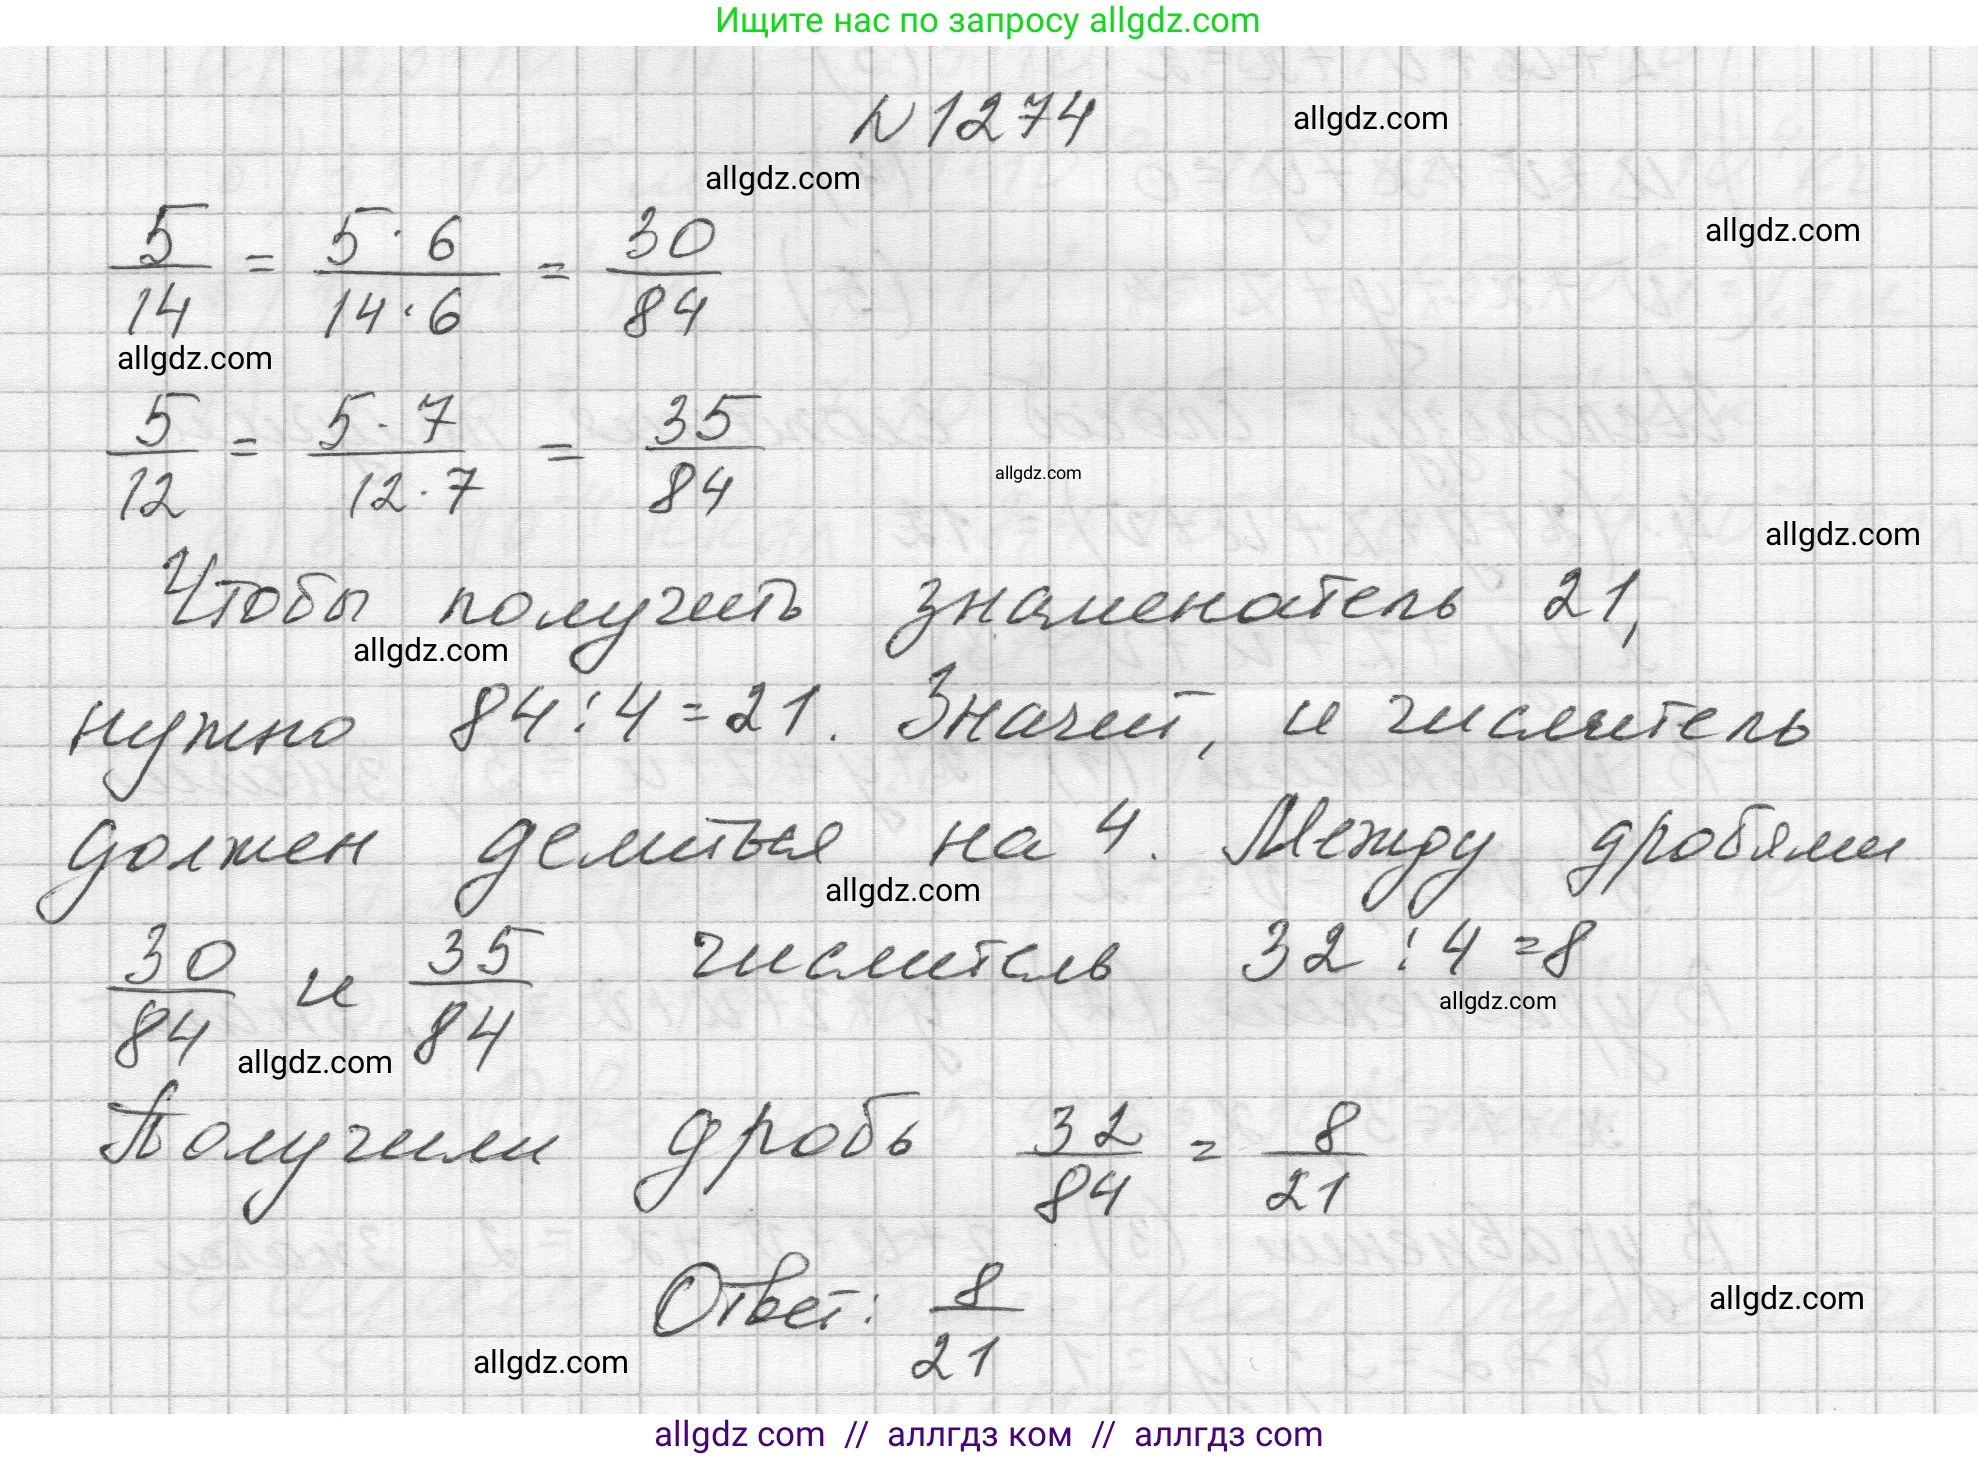 Ищите нас по запросу allgdz.com
N 1274
allgdz.com
allgdz.com
5/14 = 5·6/14·6 = 30/84
allgdz.com
allgdz.com
5/12 = 5·7/12·7 = 35/84
allgdz.com
allgdz.com
Чтобы получить знаменатель 21,
allgdz.com
нужно 84:4=21. Значит, и числитель
должен делиться на 4. Между дробями
allgdz.com
30/84 и 35/84 числитель 32:4=8
allgdz.com
allgdz.com
Получили дробь 32/84 = 8/21
Ответ: 8/21
allgdz.com
allgdz.com
allgdz com // аллгдз ком // аллгдз com